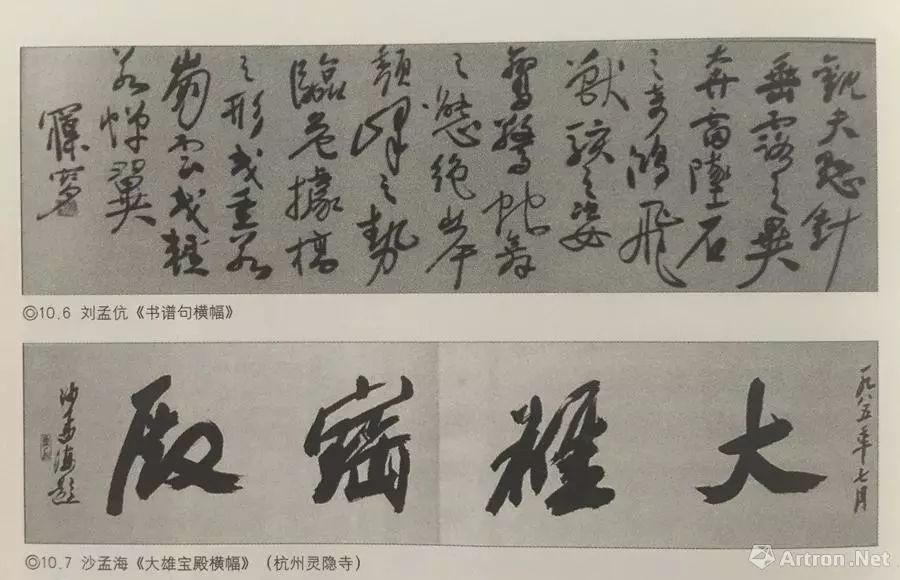 觀夫懸針
垂露之異
奔雷墜石
之奇鴻飛
獸駭之姿
鸞驚蛇舞
之態絕岸
頹峰之勢
臨危據槁
之形或重若
崩雲或輕
若蟬翼
臞叟
◎10.6 刘孟伉《书谱句横幅》
一九八五年七月
大雄寶殿
沙孟海題
◎10.7 沙孟海《大雄宝殿横幅》(杭州灵隐寺)
Artron.Net